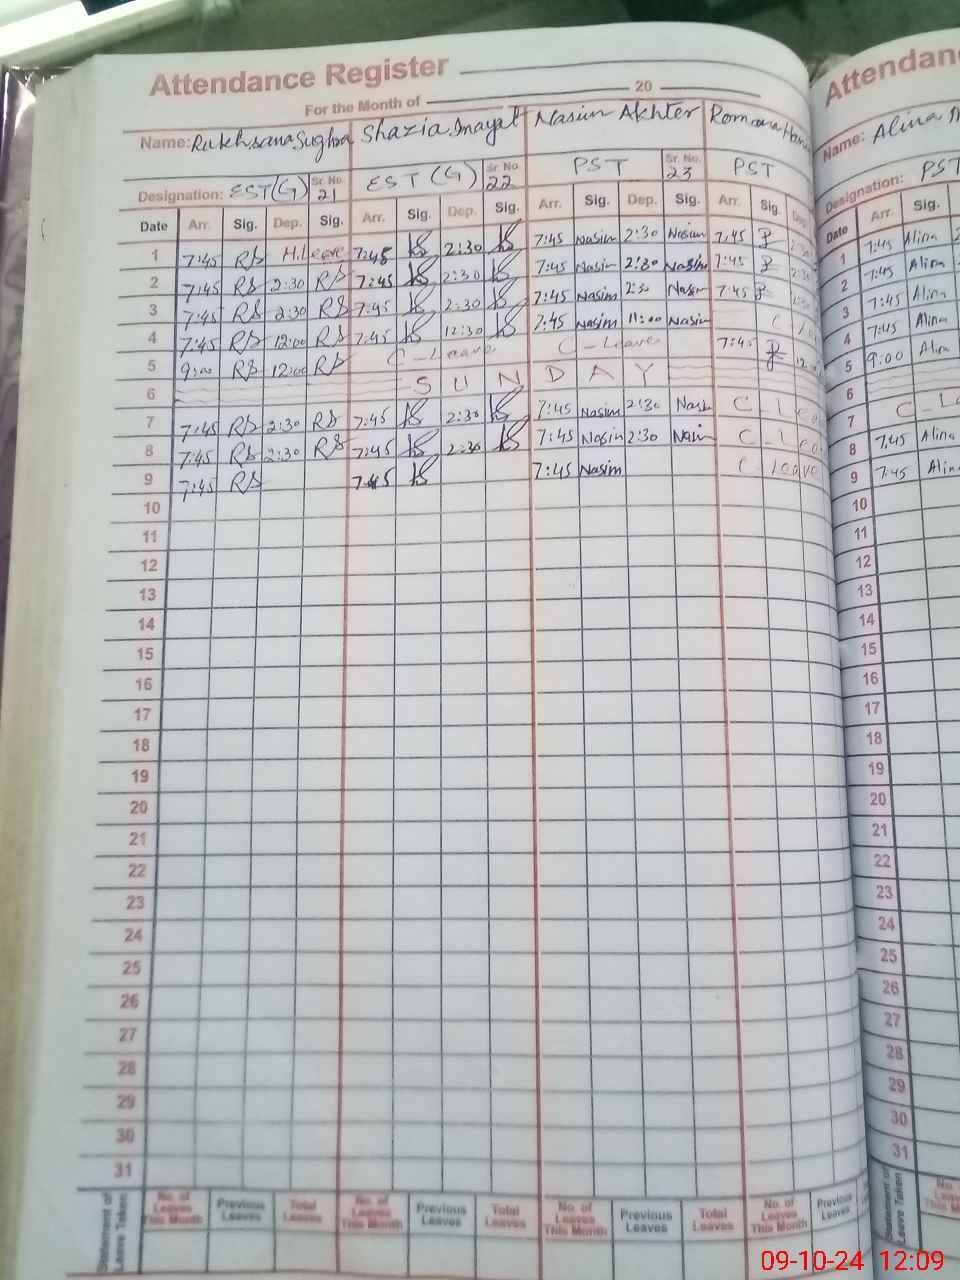 Attendance Register
For the Month of 20
Name: Rukhsana Sughra Shazia Inayat Nasim Akhter Romana
Designation: EST(G) Sr. No. 21 EST (G) Sr. No. 22 PST Sr. No. 23 PST
Date Arr. Sig. Dep. Sig. Arr. Sig. Dep. Sig. Arr. Sig. Dep. Sig. Arr. Sig. Dep.
1 7:45 RS H.Leave 7:45 2:30 7:45 Nasim 2:30 Nasim 7:45
2 7:45 RS 2:30 RS 7:45 2:30 7:45 Nasim 2:30 Nasim 7:45
3 7:45 RS 2:30 RS 7:45 2:30 7:45 Nasim 2:30 Nasim 7:45
4 7:45 RS 12:00 RS 7:45 12:30 7:45 Nasim 11:00 Nasim C
5 9:00 RS 12:00 RS C - Leave C - Leave 7:45
6 SUNDAY
7 7:45 RS 2:30 RS 7:45 2:30 7:45 Nasim 2:30 Nasim C - Lea
8 7:45 RS 2:30 RS 7:45 2:30 7:45 Nasim 2:30 Nasim C - Lea
9 7:45 RS 7:45 7:45 Nasim C Leave
10
11
12
13
14
15
16
17
18
19
20
21
22
23
24
25
26
27
28
29
30
31
Statement of Leave Taken
No. of Leaves This Month Previous Leaves Total Leaves No. of Leaves This Month Previous Leaves Total Leaves No. of Leaves This Month Previous Leaves Total Leaves No. of Leaves This Month Previous Leaves
Attendan
Name: Alina
Designation: PST
Date Arr. Sig.
1 7:45 Alina
2 7:45 Alina
3 7:45 Alina
4 7:45 Alina
5 9:00 Alina
6
7 C - Le
8 7:45 Alina
9 7:45 Alina
10
11
12
13
14
15
16
17
18
19
20
21
22
23
24
25
26
27
28
29
30
31
Statement of Leave Taken
09-10-24 12:09